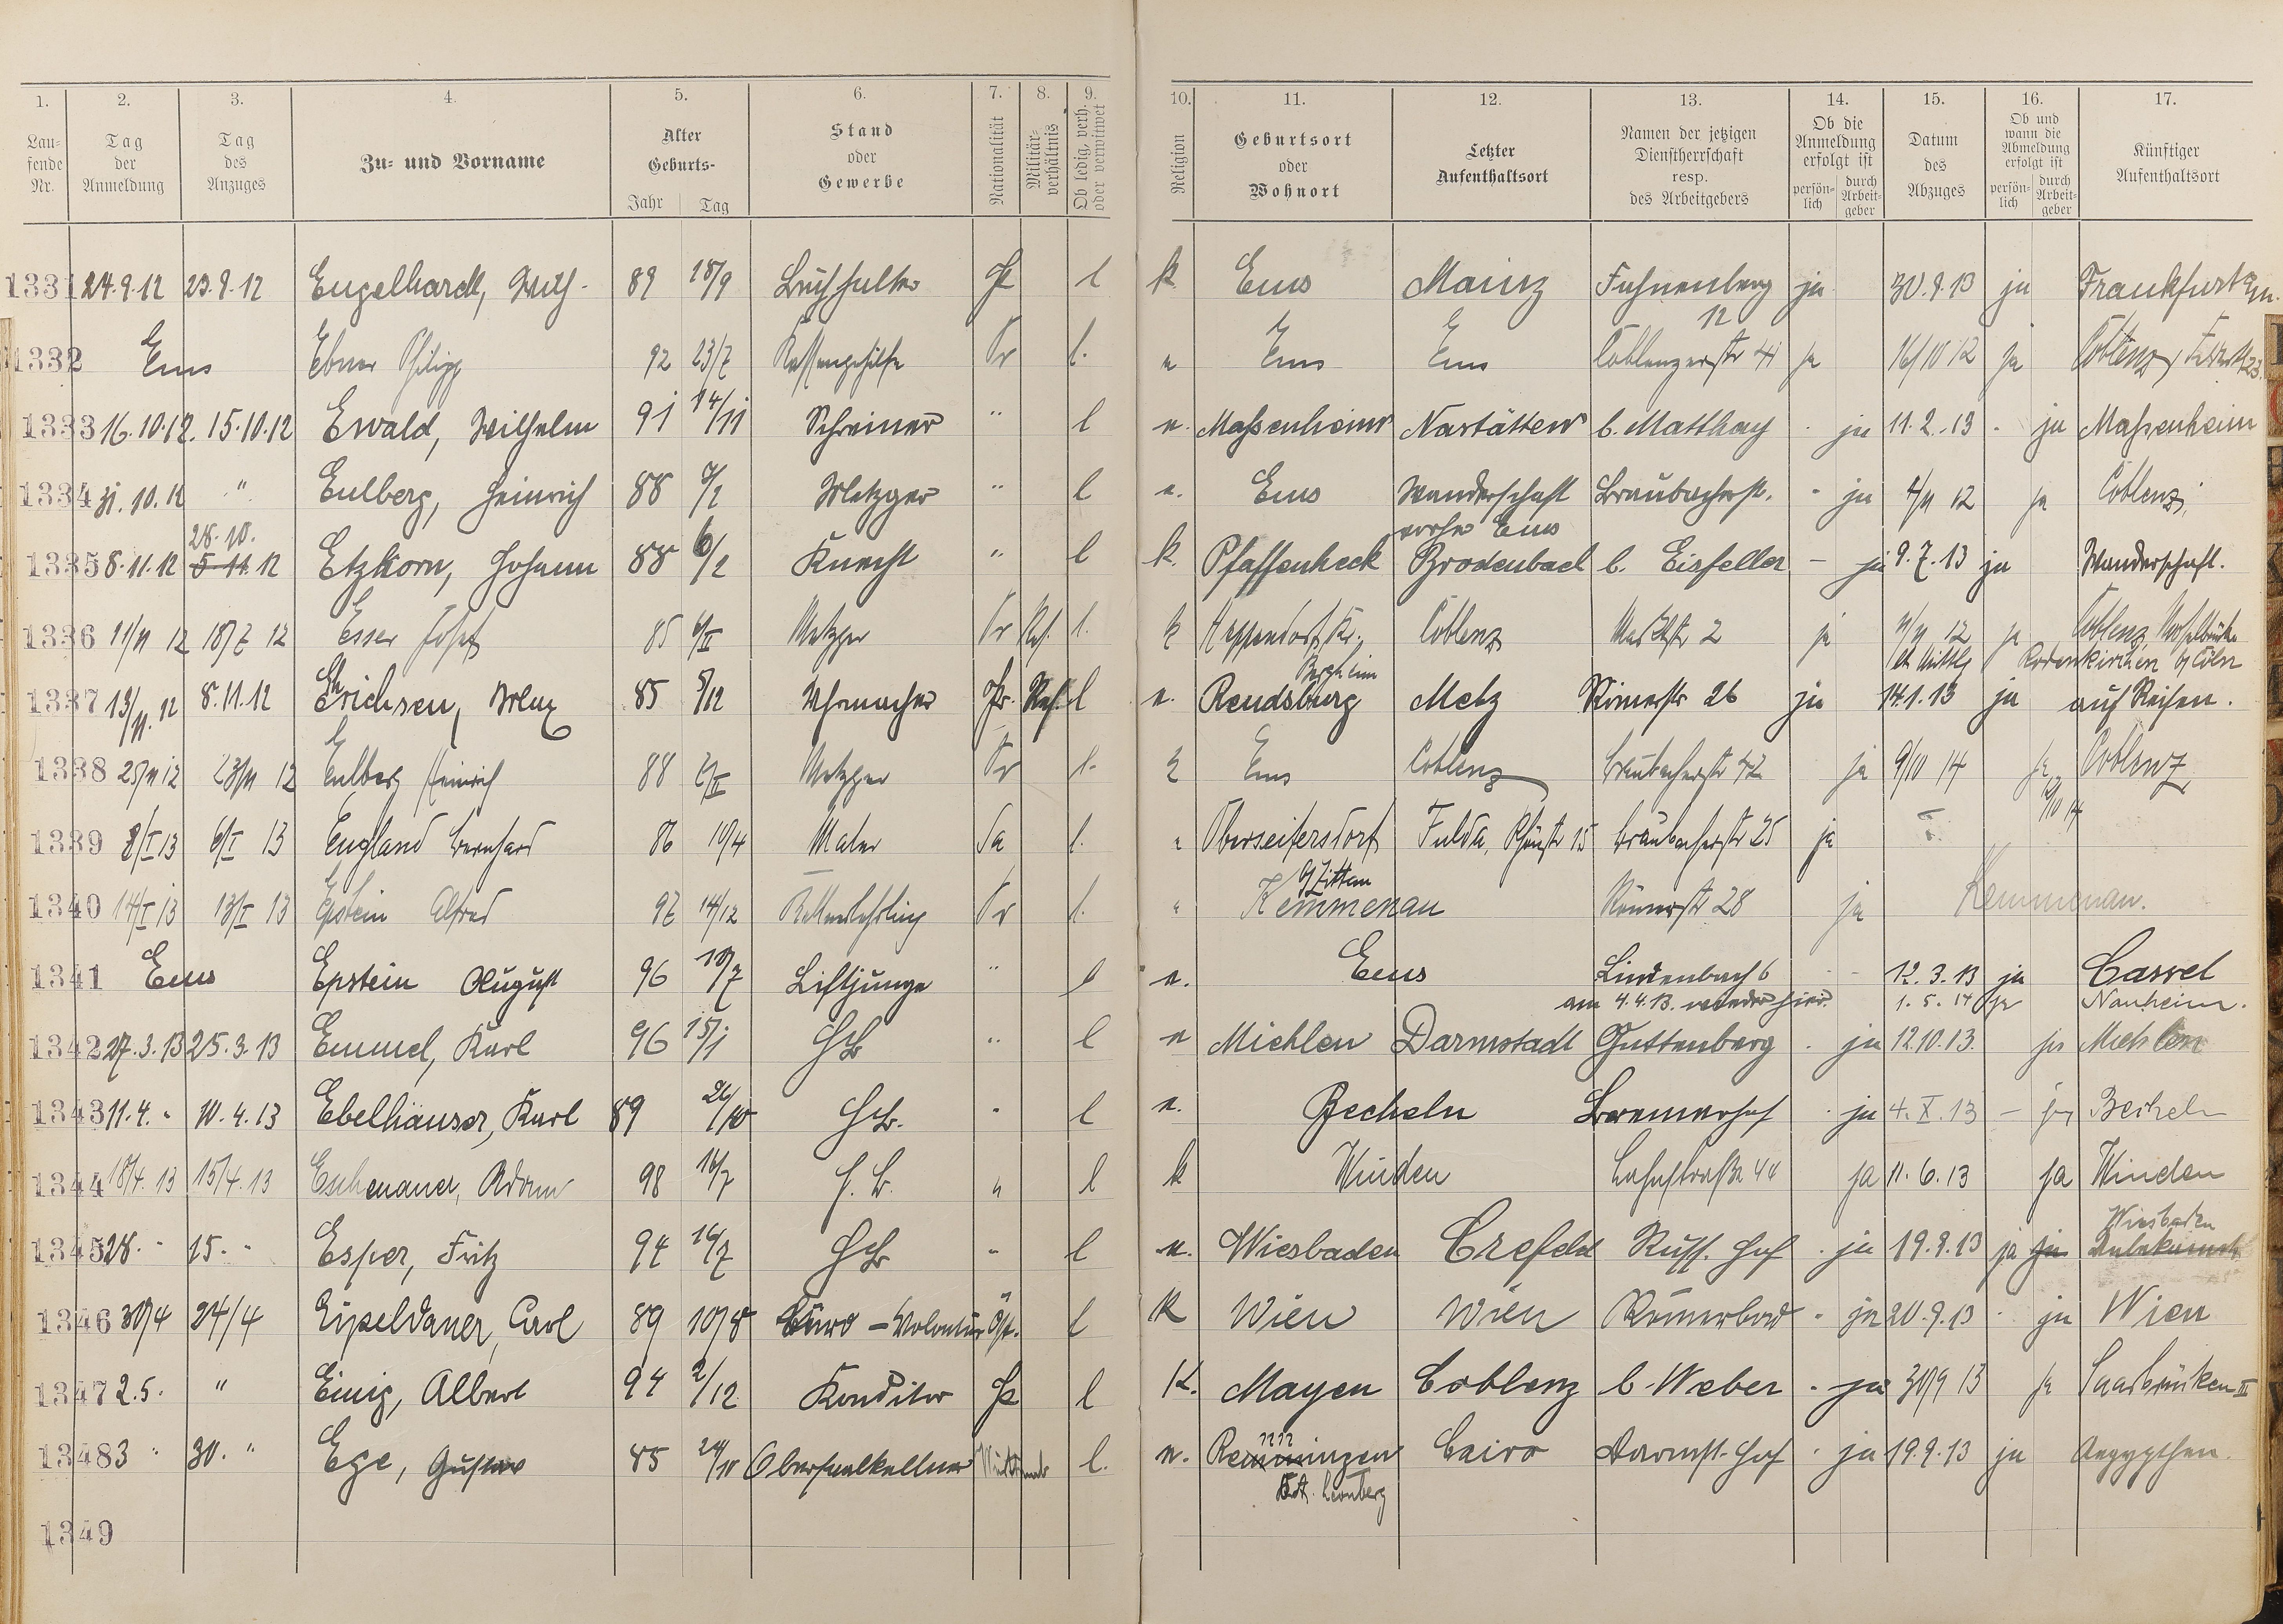 1. 2. 3. 4. 5. 6. 7. 8. 9. 10. 11. 12. 13. 14. 15. 16. 17.
Lau-fende Nr. Tag der Anmeldung Tag des Anzuges Zu- und Vorname Alter Geburts- Jahr Tag Stand oder Gewerbe Nationalität Militär-verhältnis Ob ledig, verh. oder verwitwet Religion Geburtsort oder Wohnort Letzter Aufenthaltsort Namen der jetzigen Dienstherrschaft resp. des Arbeitgebers Ob die Anmeldung erfolgt ist persön-lich durch Arbeit-geber Datum des Abzuges Ob und wann die Abmeldung erfolgt ist persön-lich durch Arbeit-geber Künftiger Aufenthaltsort
1331 24.9.12 23.9.12 Engelhardt, 89 18/9 Buchhalter l k Ems Mainz ja 30.9.13 ja Frankfurt
12
1332 Ems Ebner Philipp 92 23/7 Kassengehilfe Pr l. Ems Ems Coblenzerstr 41 ja 16/10 12 ja Coblenz, 23.
1333 16.10.12. 15.10.12 Ewald, Wilhelm 91 14/11 Schreiner " l Maßenheim Nastätten b. Matthay ja 11.2.13 ja Maßenheim
1334 31.10.12 " Eulberg, Heinrich 88 Metzger " l Ems Wanderschaft Braubacherstr. ja 4/11 12 ja Coblenz
28.10. vorher Ems
1335 8.11.12 5.11.12 Etzkorn, Johann 88 6/2 Knecht " l k. Pfaffenheck Brodenbach b. Eisfeller - ja 9.7.13 ja Wanderschaft.
1336 11/11 12 18/7 12 Esser Josef 85 6/II Metzger Pr Res. l. k Heppendorf, Kr. Coblenz 2 ja 11/11 12 ja Coblenz, Moselbrücke
Bergheim Rodenkirchen b/ Cöln
1337 13/11.12 8.11.12 Erichsen, Max 85 5/12 Uhrmacher Pr. Res. l Rendsburg Metz Römerstr 26 ja 14.1.13 ja auf Reisen.
1338 25/11 12 23/11 12 Eulberg Heinrich 88 Metzger Pr l. Ems Coblenz Braubacherstr 42 ja 9/10 14 ja Coblenz
10/10 14
1339 8/I 13 6/I 13 England Bernhard 86 10/4 Maler Sa l. Oberseifersdorf Fulda, Rhönstr 15 Braubacherstr 25 ja
b/ Zittau
1340 14/I 13 13/I 13 Epstein Alfred 97 14/12 Kellnerlehrling Pr l. Kemmenau Römerstr 28 ja Kemmenau.
1341 Ems Epstein August 96 10/7 Liftjunge " l Ems Lindenbach 6 12.3.13 ja Cassel
am 4.4.13. wieder hier. 1.5.14 ja Nauheim.
1342 27.3.13 25.3.13 Emmel, Karl 96 15/1 " l Miehlen Darmstadt Guttenberg ja 12.10.13. ja Miehlen
1343 11.4. 10.4.13 Ebelhäuser, Karl 89 26/10 l Becheln Bremerhof ja 4.X.13 - ja Becheln
1344 18/4.13 15/4.13 Eschenauer, Adam 98 16/7 " l k Winden Lahnstraße 44 ja 11.6.13 ja Winden
Wiesbaden
1345 28. " 15. " Esper, Fritz 94 16/7 " l Wiesbaden Crefeld Russ. Hof ja 19.9.13 ja ja Unbekannt
1346 30/4 24/4 Eipeldauer, Carl 89 10/8 Büro-Volontär Öst. l K Wien Wien Römerbad ja 20.9.13 ja Wien
1347 2.5. " Einig, Albert 94 2/12 Konditor l K. Mayen Coblenz b. Weber ja 30/9 13 ja Saarbrücken III
1348 3 " 30. " Ege, Gustav 85 24/10 Obersaalkellner l. Renningen Cairo Darmst. Hof ja 19.9.13 ja Aegypthen.
O.A. Leonberg
1349